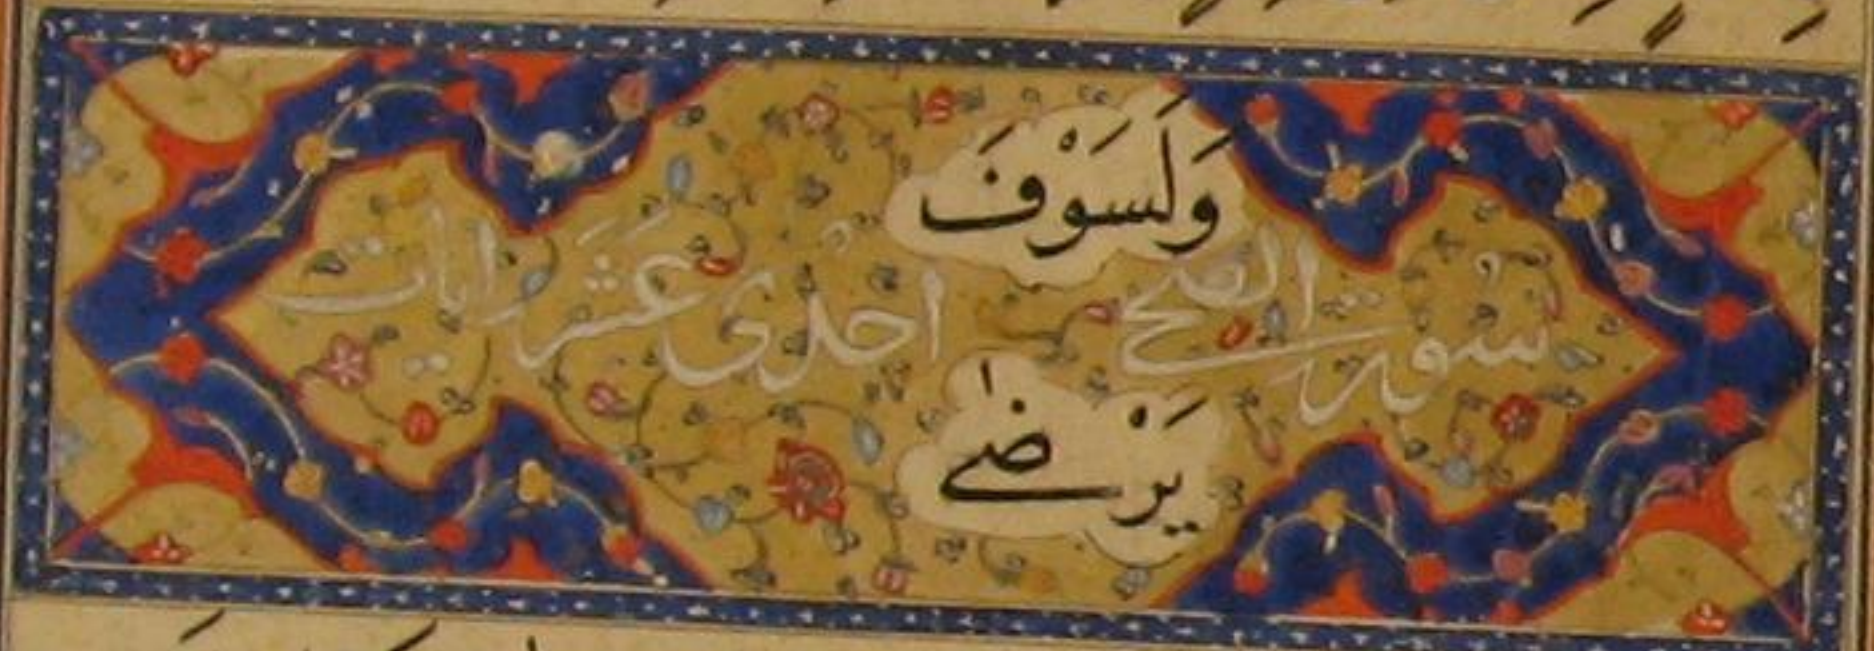 وَلَسَوْفَ
سُورة الضحى احْدٰى عَشَرَ ايات
يَرْضٰى